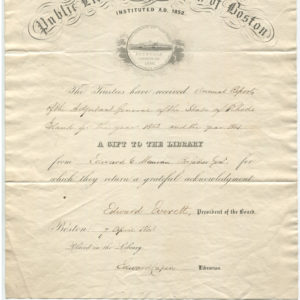 Public Library of the City of Boston
INSTITUTED A.D. 1852.
The Trustees have received Annual Reports
of the Adjutant General of the State of Rhode
Island for the year 1863 and the year 1864
A GIFT TO THE LIBRARY
from Edward C. Mauran Adjutant Genl. for
which they return a grateful acknowledgment
Edward Everett, President of the Board.
Boston: 7 April
Placed in the Library.
Librarian.